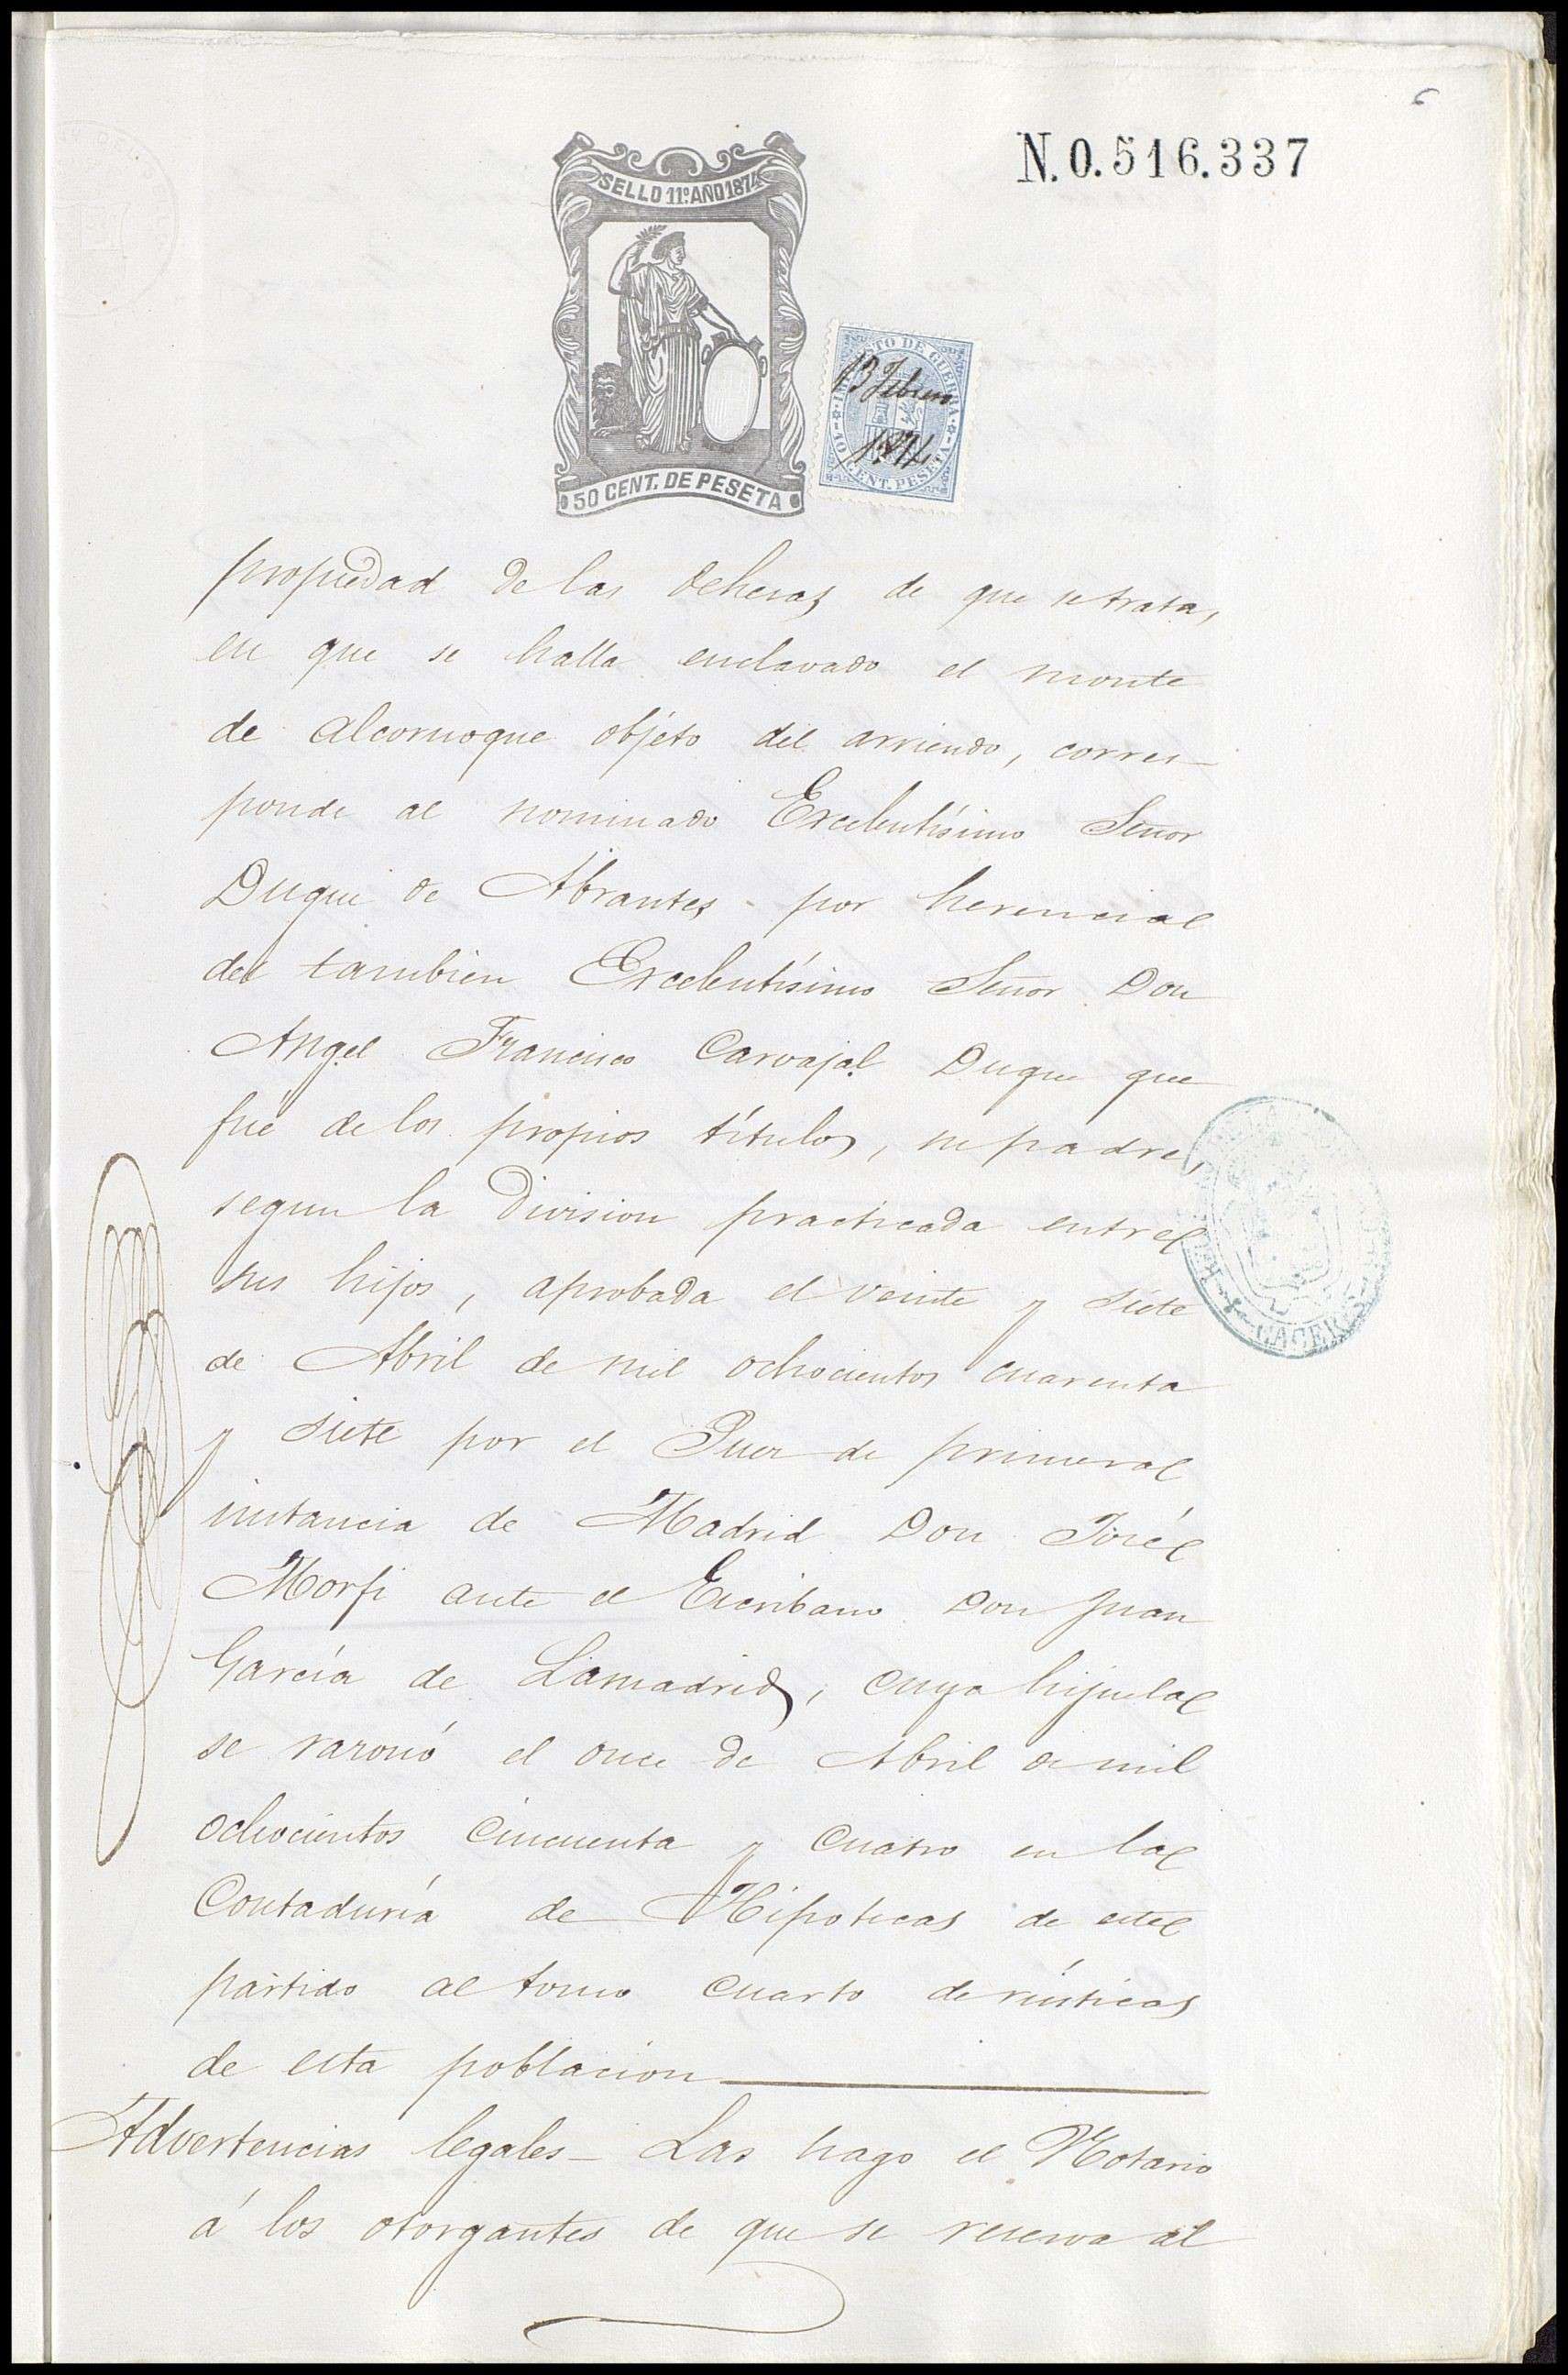 6
N.0.516.337
SELLO 11º AÑO 1874
50 CENT. DE PESETA
IMPUESTO DE GUERRA
13 Febrero
1874
10 CENT. PESETA
propiedad de las dehesas de que se trata,
en que se halla enclavado el monte
de alcornoque objéto del arriendo, corres-
ponde al nominado Excelentísimo Señor
Duque de Abrantes por herencia
del tambien Excelentísimo Señor Don
Angel Francisco Carvajal Duque que
fué de los propios títulos, su padre,
segun la division practicada entre
sus hijos, aprobada el veinte y siete
de Abril de mil ochocientos cuarenta
y siete por el Juez de primera
instancia de Madrid Don José
Morfi ante el Escribano Don Juan
García de Lamadrid, cuya hijuela
se razonó el once de Abril de mil
ochocientos cincuenta y cuatro en la
Contaduría de Hipotecas de este
partido al tomo cuarto de rústicas
de esta poblacion
Advertencias legales - Las hago el Notario
á los otorgantes de que se reserva al
CACERES